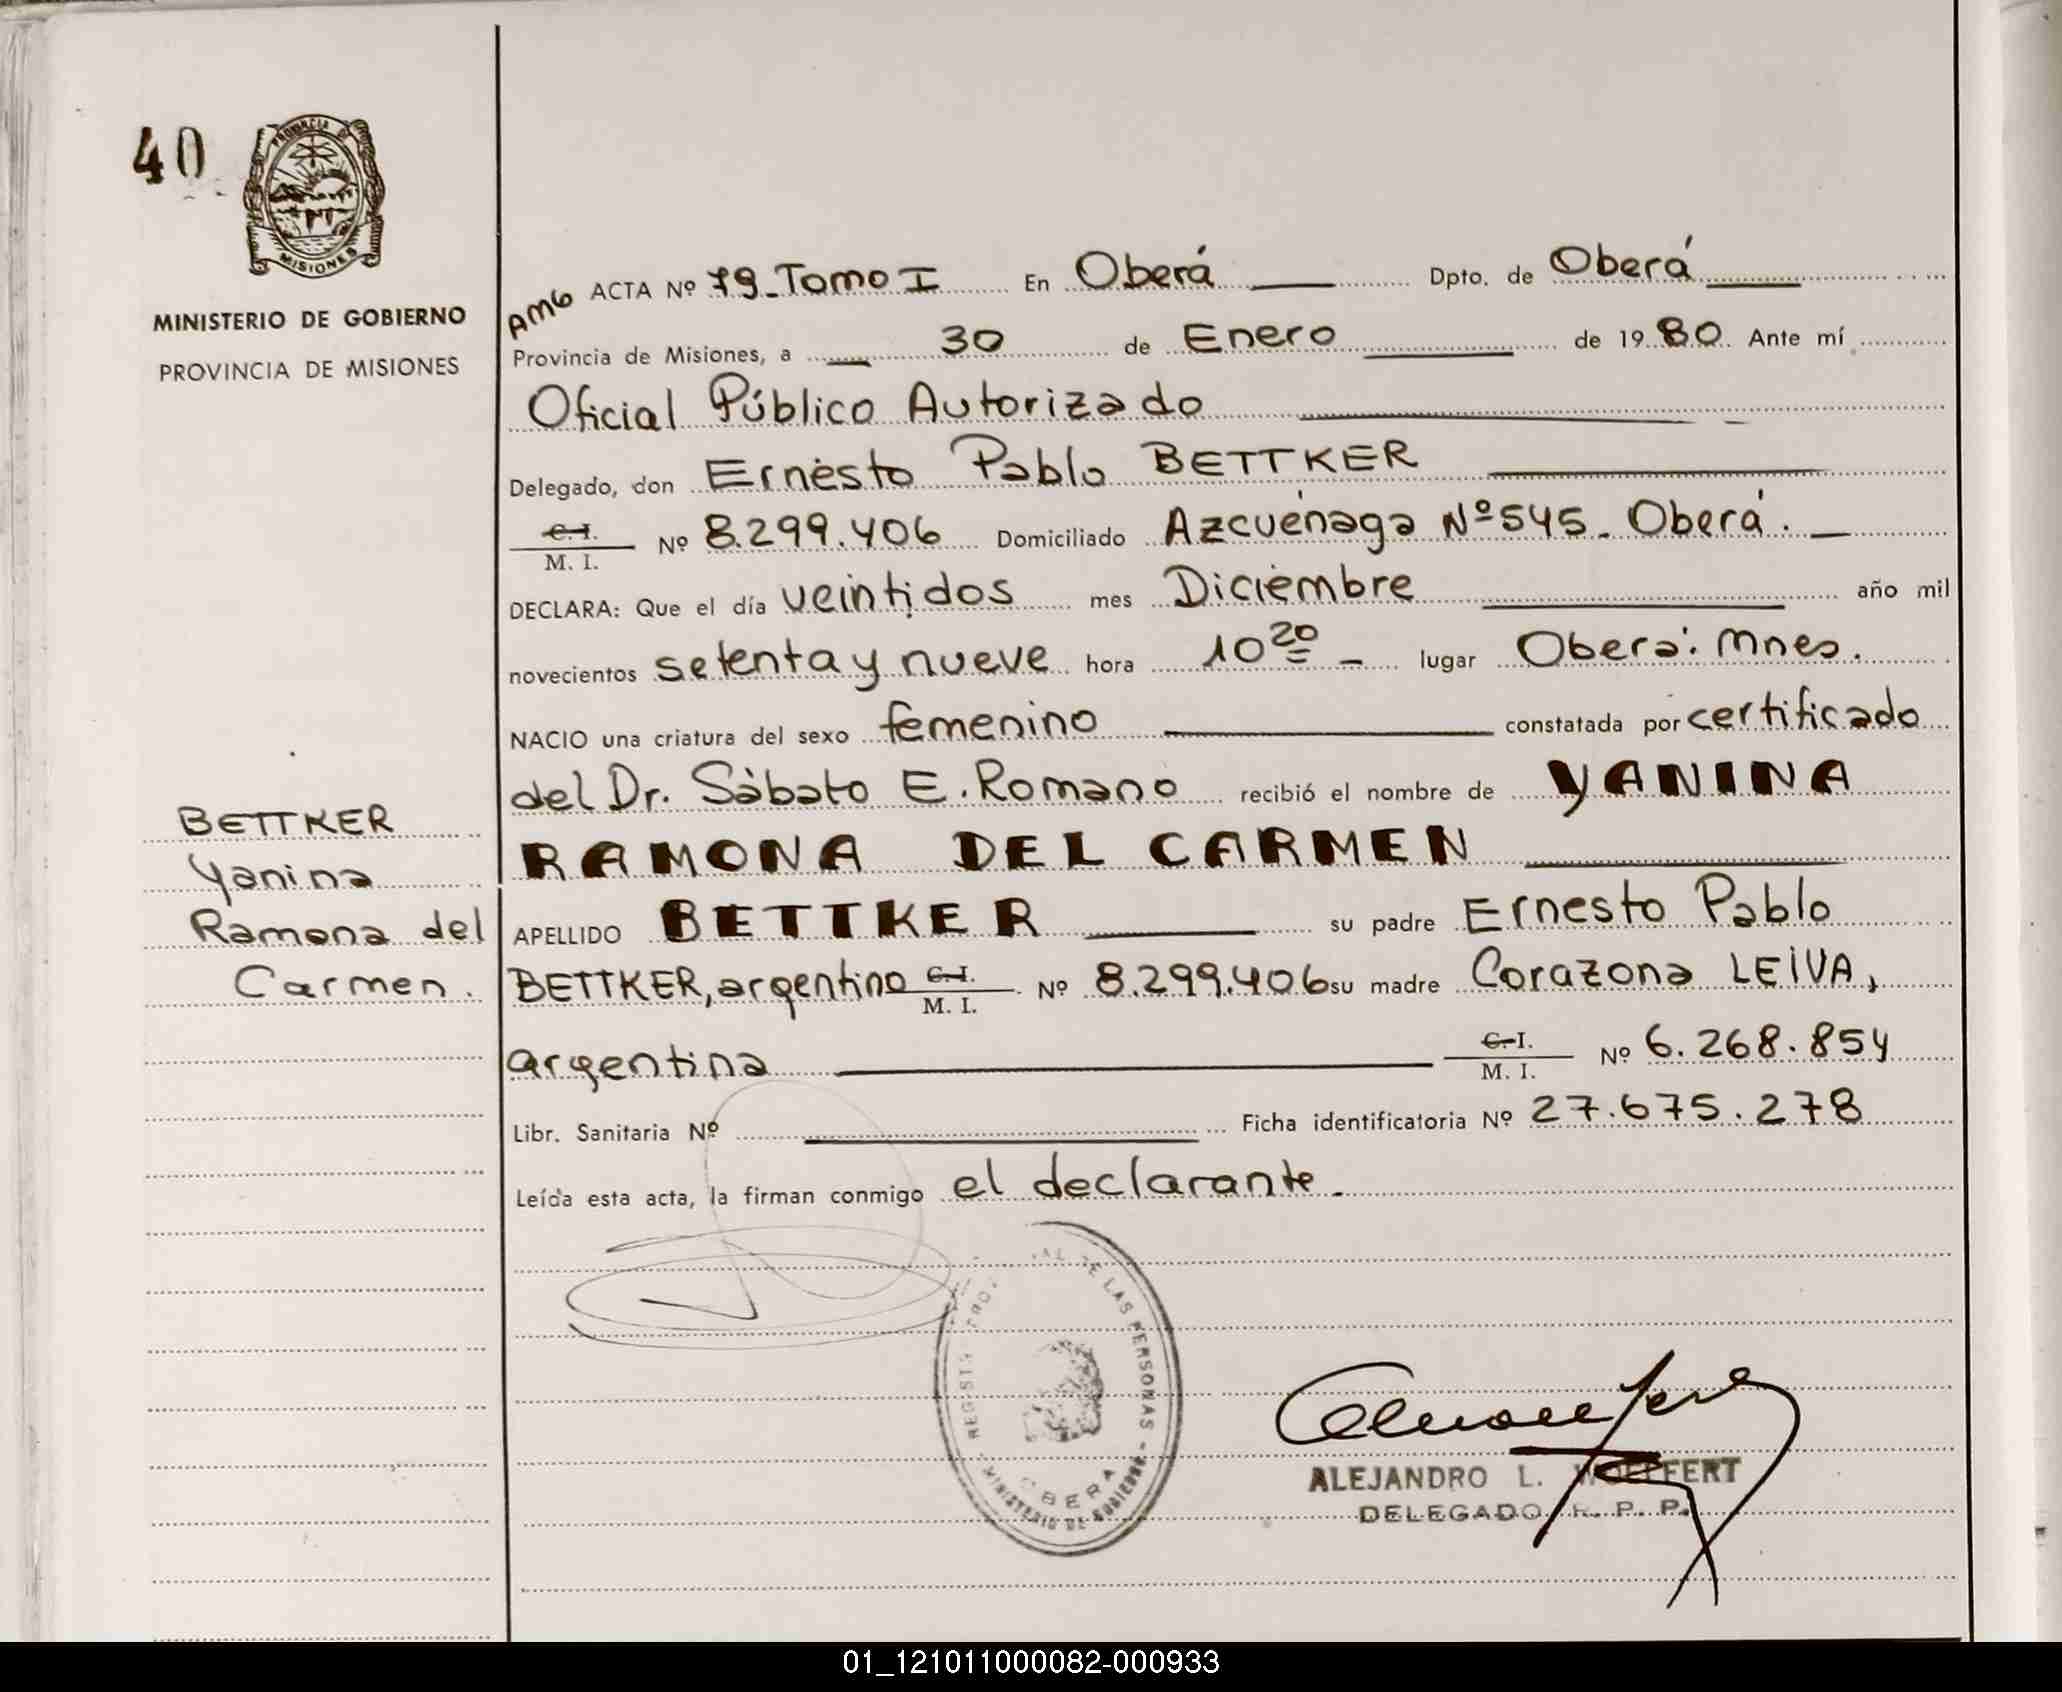 40
PROVINCIA DE
MISIONES
MINISTERIO DE GOBIERNO
PROVINCIA DE MISIONES
BETTKER
Yanina
Ramona del
Carmen.
AMG ACTA Nº 79_Tomo I En Oberá Dpto. de Oberá
Provincia de Misiones, a 30 de Enero de 1980. Ante mí
Oficial Público Autorizado
Delegado, don Ernesto Pablo BETTKER
C.I.
M. I. Nº 8.299.406 Domiciliado Azcuénaga Nº 545_ Oberá.
DECLARA: Que el día veintidos mes Diciembre año mil
novecientos setenta y nueve hora 10 20 lugar Oberá. Mnes.
NACIO una criatura del sexo femenino constatada por certificado
del Dr. Sábato E. Romano recibió el nombre de YANINA
RAMONA DEL CARMEN
APELLIDO BETTKER su padre Ernesto Pablo
BETTKER, argentino C.I. M. I. Nº 8.299.406 su madre Corazona LEIVA,
argentina C.I. M. I. Nº 6.268.854
Libr. Sanitaria Nº Ficha identificatoria Nº 27.675.278
Leída esta acta, la firman conmigo el declarante.
DE LAS PERSONAS - MINISTERIO DE GOBIERNO
OBERA
ALEJANDRO L. WOEFFERT
DELEGADO R. P. P.
01_121011000082-000933